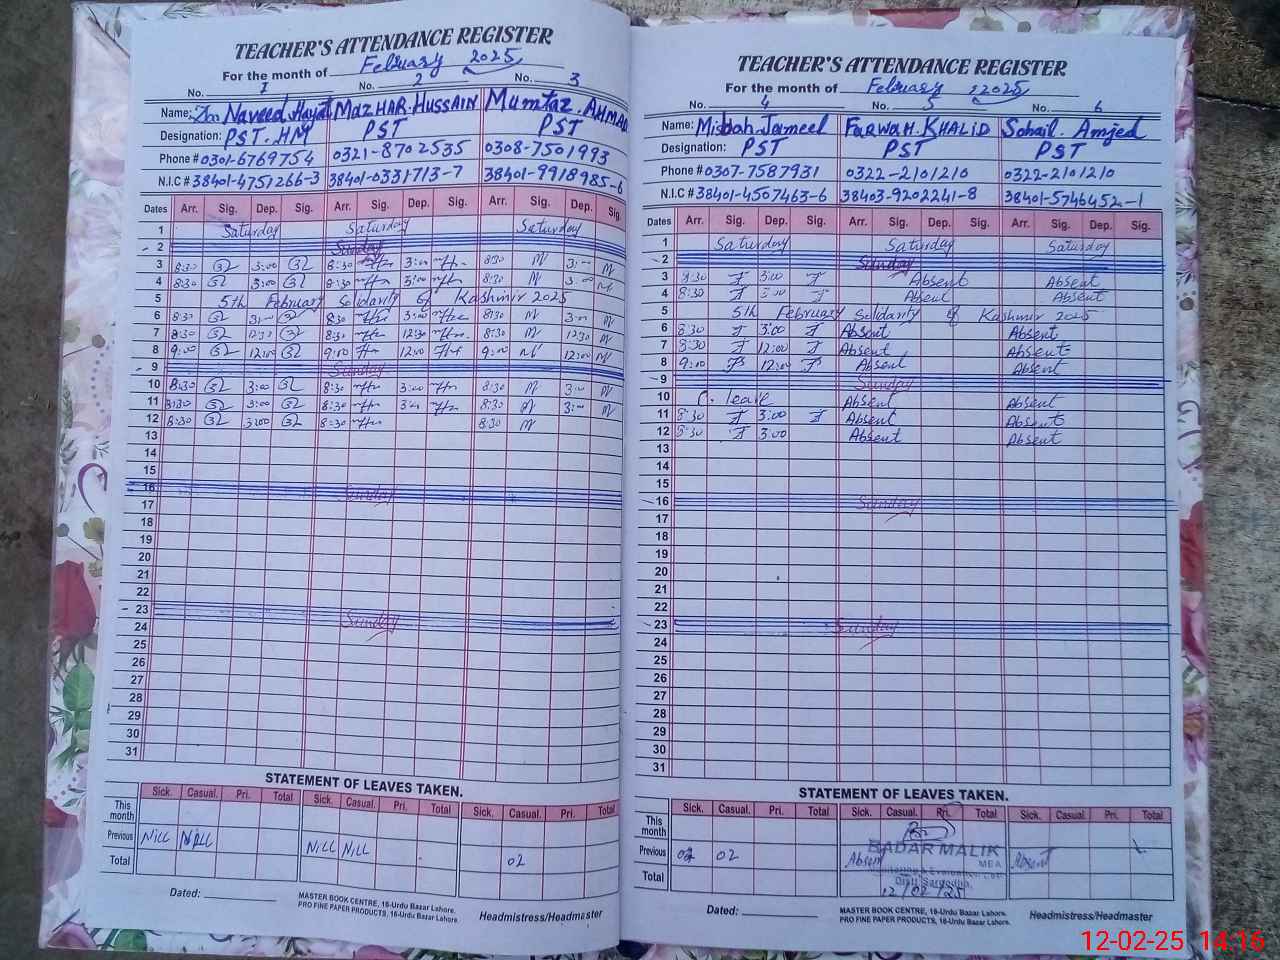 TEACHER'S ATTENDANCE REGISTER
For the month of February 2025
No. 1 No. 2 No. 3
Name: Naveed Hayat MAZHAR.HUSSAIN Mumtaz.AHMAD
Designation: PST.HM PST PST
Phone # 0301-6769754 0321-8702535 0308-7501993
N.I.C # 38401-4751266-3 38401-0331713-7 38401-9918985-6
Dates Arr. Sig. Dep. Sig. Arr. Sig. Dep. Sig. Arr. Sig. Dep. Sig.
1 Saturday Saturday Saturday
2 Sunday
3 8:30 3:00 8:30 3:00 8:30 3:00
4 8:30 3:00 8:30 3:00 8:30 3:00
5 5th February Solidarity of Kashmir 2025
6 8:30 3:00 8:30 3:00 8:30 3:00
7 8:30 12:30 8:30 12:30 8:30 12:30
8 9:00 12:00 9:00 12:00 9:00 12:00
9 Sunday
10 8:30 3:00 8:30 3:00 8:30 3:00
11 8:30 3:00 8:30 3:00 8:30 3:00
12 8:30 3:00 8:30 8:30
13
14
15
16 Sunday
17
18
19
20
21
22
23 Sunday
24
25
26
27
28
29
30
31
STATEMENT OF LEAVES TAKEN.
Sick. Casual. Pri. Total Sick. Casual. Pri. Total Sick. Casual. Pri. Total
This month
Previous NiLL NiLL NiLL NiLL 02
Total
Dated:
MASTER BOOK CENTRE, 16-Urdu Bazar Lahore.
PRO FINE PAPER PRODUCTS, 16-Urdu Bazar Lahore.
Headmistress/Headmaster
TEACHER'S ATTENDANCE REGISTER
For the month of February 2025
No. 4 No. 5 No. 6
Name: Misbah Jameel FARWAH.KHALID Sohail. Amjed
Designation: PST PST PST
Phone # 0307-7587931 0322-2101210 0322-2101210
N.I.C # 38401-4507463-6 38403-9202241-8 38401-5746452-1
Dates Arr. Sig. Dep. Sig. Arr. Sig. Dep. Sig. Arr. Sig. Dep. Sig.
1 Saturday Saturday Saturday
2 Sunday
3 8:30 3:00 Absent Absent
4 8:30 3:00 Absent Absent
5 5th February Solidarity of Kashmir 2025
6 8:30 3:00 Absent Absent
7 8:30 12:00 Absent Absent
8 9:00 12:00 Absent Absent
9 Sunday
10 C. leave Absent Absent
11 8:30 3:00 Absent Absent
12 8:30 3:00 Absent Absent
13
14
15
16 Sunday
17
18
19
20
21
22
23 Sunday
24
25
26
27
28
29
30
31
STATEMENT OF LEAVES TAKEN.
Sick. Casual. Pri. Total Sick. Casual. Pri. Total Sick. Casual. Pri. Total
This month
BADAR MALIK
Previous 02 02 Absent Absent
MEA
Total
Distt Sargodha.
12/02/25
Dated:
MASTER BOOK CENTRE, 16-Urdu Bazar Lahore.
PRO FINE PAPER PRODUCTS, 16-Urdu Bazar Lahore.
Headmistress/Headmaster
12-02-25 14:16